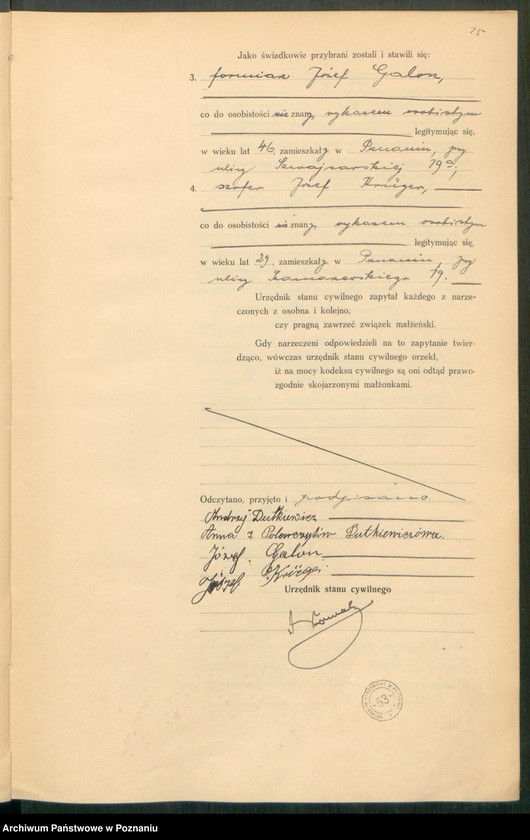 75
Jako świadkowie przybrani zostali i stawili się:
3. formiarz Józef Galon,
co do osobistości nie znany, wykazem osobistym
legitymując się,
w wieku lat 46, zamieszkały w Poznaniu, przy
ulicy Szwajcarskiej 19a,
4. szofer Józef Krüger,
co do osobistości nie znany, wykazem osobistym
legitymując się
w wieku lat 29, zamieszkały w Poznaniu, przy
ulicy 19.
Urzędnik stanu cywilnego zapytał każdego z narze-
czonych z osobna i kolejno,
czy pragną zawrzeć związek małżeński.
Gdy narzeczeni odpowiedzieli na to zapytanie twier-
dząco, wówczas urzędnik stanu cywilnego orzekł,
iż na mocy kodeksu cywilnego są oni odtąd prawo-
zgodnie skojarzonymi małżonkami.
Odczytano, przyjęto i podpisano.
Andrzej Dutkiewicz
Anna z Polowczyków Dutkiewiczowa.
Józef Galon
Józef Krüger
Urzędnik stanu cywilnego
33
Archiwum Państwowe w Poznaniu